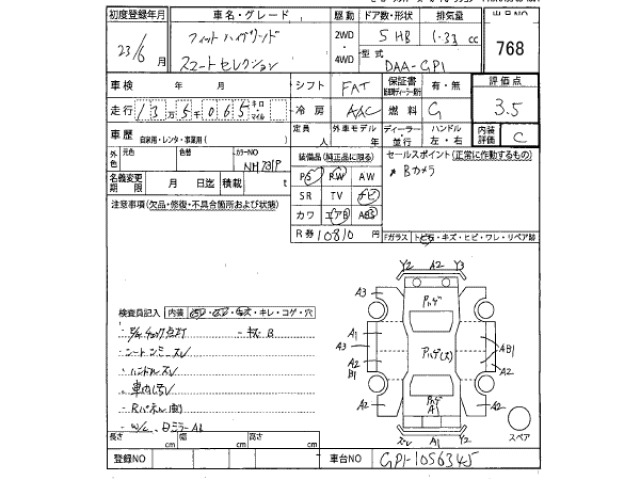 初度登録年月 車名・グレード 駆動 ドア数・形状 排気量
23/6月 フィットハイブリッド 2WD 5 HB 1.33 cc 768
スマートセレクション 4WD 型式 DAA-GP1
車検 年 月 シフト FAT 保証書 有・無 評価点
走行 13万5千065 キロ マイル 冷房 AAC 燃料 G 3.5
車歴 自家用・レンタ・事業用( ) 定員 人 外車モデル 年 ディーラー・並行 ハンドル 左・右 内装評価 C
外色 元色 色替 カラーNO NH731P 装備品(純正品に限る) セールスポイント(正常に作動するもの)
名義変更期限 月 日迄 積載 t PS PW AW Bカメラ
注意事項(欠品・修復・不具合箇所および状態) SR TV ナビ
カワ エアB ABS
R券 10810 円 Fガラス トビ石・キズ・ヒビ・ワレ・リペア跡
Y2 A2 Y3
A3 A3
検査員記入 内装 ・キレ・コゲ・穴
A1 AB1
A3
A2 A2
B1
シートシミ・スレ
ハンドルスレ
車内汚レ
A2 A2
Rパネル
スレ A1 Y2
長さ cm 幅 cm 高さ cm スペア
登録NO 車台NO GP1-1056345